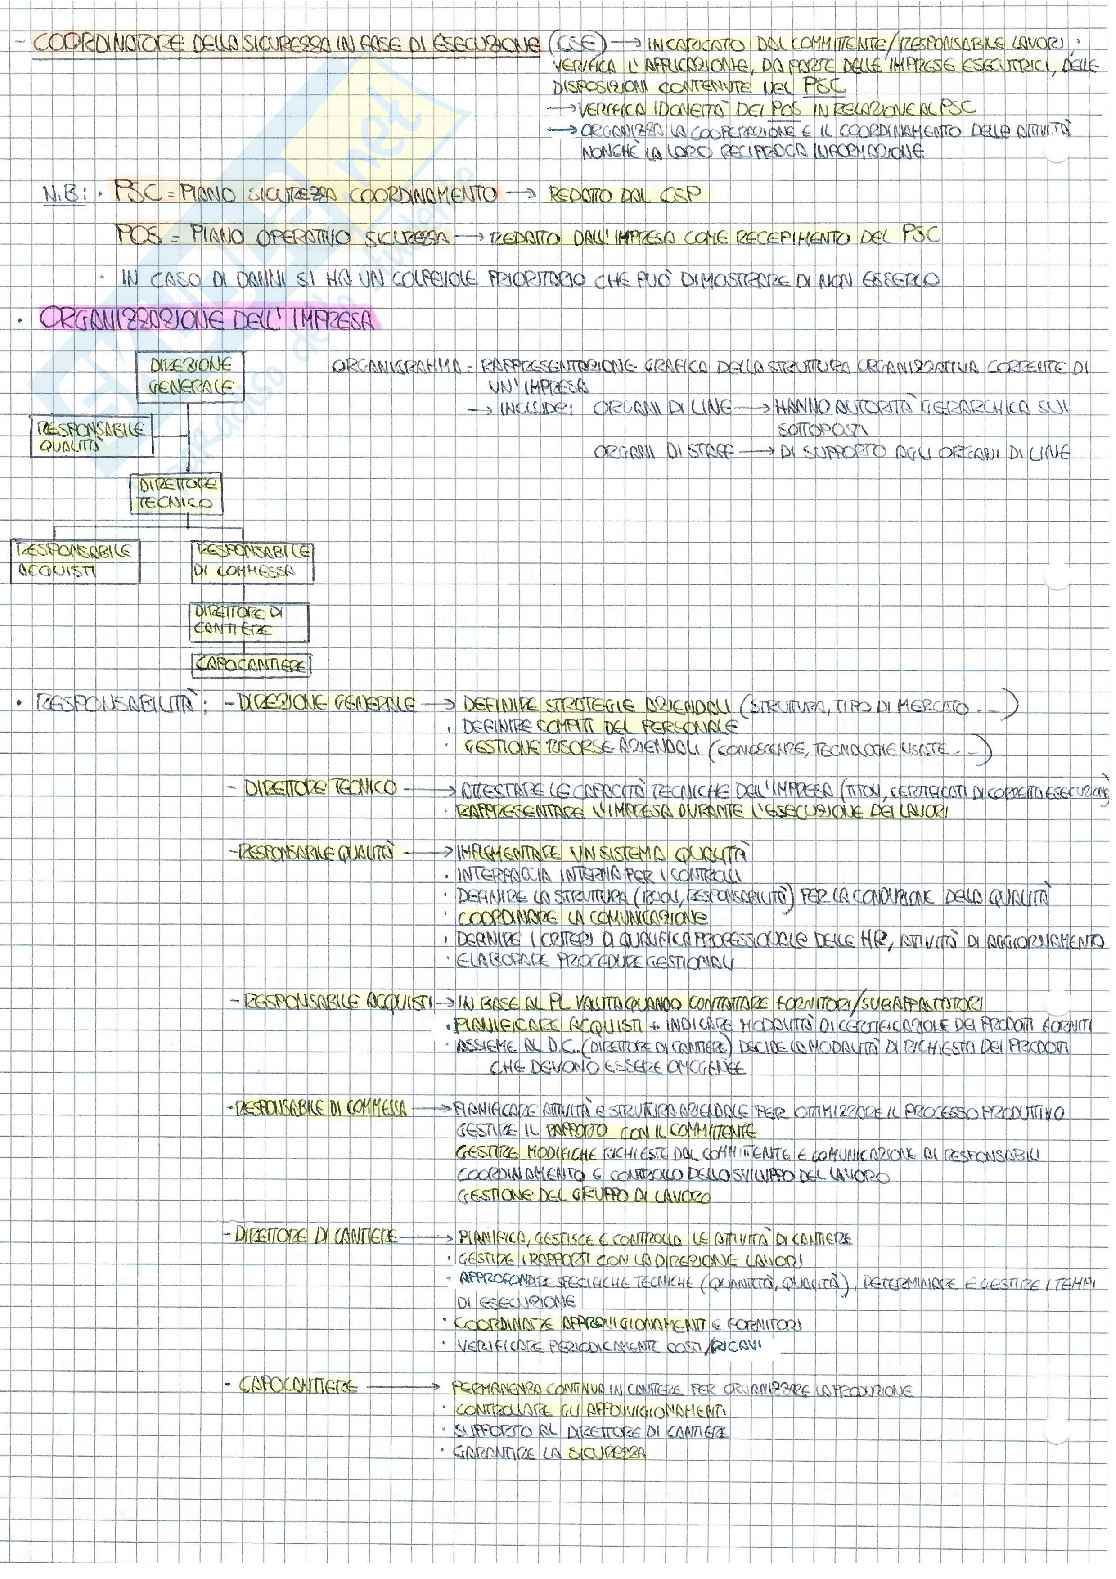 - COORDINATORE DELLA SICUREZZA IN FASE DI ESECUZIONE (CSE) → INCARICATO DAL COMMITTENTE/RESPONSABILE LAVORI:
VERIFICA L'APPLICAZIONE, DA PARTE DELLE IMPRESE ESECUTRICI, DELLE
DISPOSIZIONI CONTENUTE NEL PSC
→ VERIFICA IDONEITÀ DEI POS IN RELAZIONE AL PSC
→ ORGANIZZA LA COOPERAZIONE E IL COORDINAMENTO DELLE ATTIVITÀ
NONCHÈ LA LORO RECIPROCA INFORMAZIONE
N.B: · PSC = PIANO SICUREZZA COORDINAMENTO → REDATTO DAL CSP
POS = PIANO OPERATIVO SICUREZZA → REDATTO DALL'IMPRESA COME RECEPIMENTO DEL PSC
· IN CASO DI DANNI SI HA UN COLPEVOLE PRIORITARIO CHE PUÒ DIMOSTRARE DI NON ESSERLO
· ORGANIZZAZIONE DELL'IMPRESA
DIREZIONE
GENERALE
ORGANIGRAMMA = RAPPRESENTAZIONE GRAFICA DELLA STRUTTURA ORGANIZZATIVA CORRENTE DI
UN'IMPRESA
→ INCLUDE: ORGANI DI LINE → HANNO AUTORITÀ GERARCHICA SUI
SOTTOPOSTI
ORGANI DI STAFF → DI SUPPORTO AGLI ORGANI DI LINE
RESPONSABILE
QUALITÀ
DIRETTORE
TECNICO
RESPONSABILE
ACQUISTI
RESPONSABILE
DI COMMESSA
DIRETTORE DI
CANTIERE
CAPOCANTIERE
· RESPONSABILITÀ: - DIREZIONE GENERALE → DEFINIRE STRATEGIE AZIENDALI (STRUTTURA, TIPO DI MERCATO ...)
· DEFINIRE COMPITI DEL PERSONALE
· GESTIONE RISORSE AZIENDALI (CONOSCENZE, TECNOLOGIE USATE ...)
- DIRETTORE TECNICO → ATTESTARE LE CAPACITÀ TECNICHE DELL'IMPRESA (TITOLI, CERTIFICATI DI CORRETTA ESECUZIONE)
· RAPPRESENTARE L'IMPRESA DURANTE L'ESECUZIONE DEI LAVORI
- RESPONSABILE QUALITÀ → IMPLEMENTARE UN SISTEMA QUALITÀ
· INTERFACCIA INTERNA PER I CONTROLLI
· DEFINIRE LA STRUTTURA (RUOLI, RESPONSABILITÀ) PER LA CONDUZIONE DELLA QUALITÀ
· COORDINARE LA COMUNICAZIONE
· DEFINIRE I CRITERI DI QUALIFICA PROFESSIONALE DELLE HR, ATTIVITÀ DI AGGIORNAMENTO
· ELABORARE PROCEDURE GESTIONALI
- RESPONSABILE ACQUISTI → IN BASE AL PL VALUTA QUANDO CONTATTARE FORNITORI/SUBAPPALTATORI
· PIANIFICARE ACQUISTI + INDICARE MODALITÀ DI CERTIFICAZIONE DEI PRODOTTI FORNITI
· ASSIEME AL D.C. (DIRETTORE DI CANTIERE) DECIDE LA MODALITÀ DI RICHIESTA DEI PRODOTTI
CHE DEVONO ESSERE OMOGENEE
- RESPONSABILE DI COMMESSA → PIANIFICARE ATTIVITÀ E STRUTTURA AZIENDALE PER OTTIMIZZARE IL PROCESSO PRODUTTIVO
GESTIRE IL RAPPORTO CON IL COMMITTENTE
GESTIRE MODIFICHE RICHIESTE DAL COMMITTENTE E COMUNICAZIONE AI RESPONSABILI
COORDINAMENTO E CONTROLLO DELLO SVILUPPO DEL LAVORO
GESTIONE DEL GRUPPO DI LAVORO
- DIRETTORE DI CANTIERE → PIANIFICA, GESTISCE E CONTROLLA LE ATTIVITÀ DI CANTIERE
· GESTIRE I RAPPORTI CON LA DIREZIONE LAVORI
· APPROFONDIRE SPECIFICHE TECNICHE (QUANTITÀ, QUALITÀ), DETERMINARE E GESTIRE I TEMPI
DI ESECUZIONE
· COORDINARE APPROVVIGIONAMENTI E FORNITORI
· VERIFICARE PERIODICAMENTE COSTI/RICAVI
- CAPOCANTIERE → PERMANENZA CONTINUA IN CANTIERE PER ORGANIZZARE LA PRODUZIONE
· CONTROLLARE GLI APPROVVIGIONAMENTI
· SUPPORTO AL DIRETTORE DI CANTIERE
· GARANTIRE LA SICUREZZA